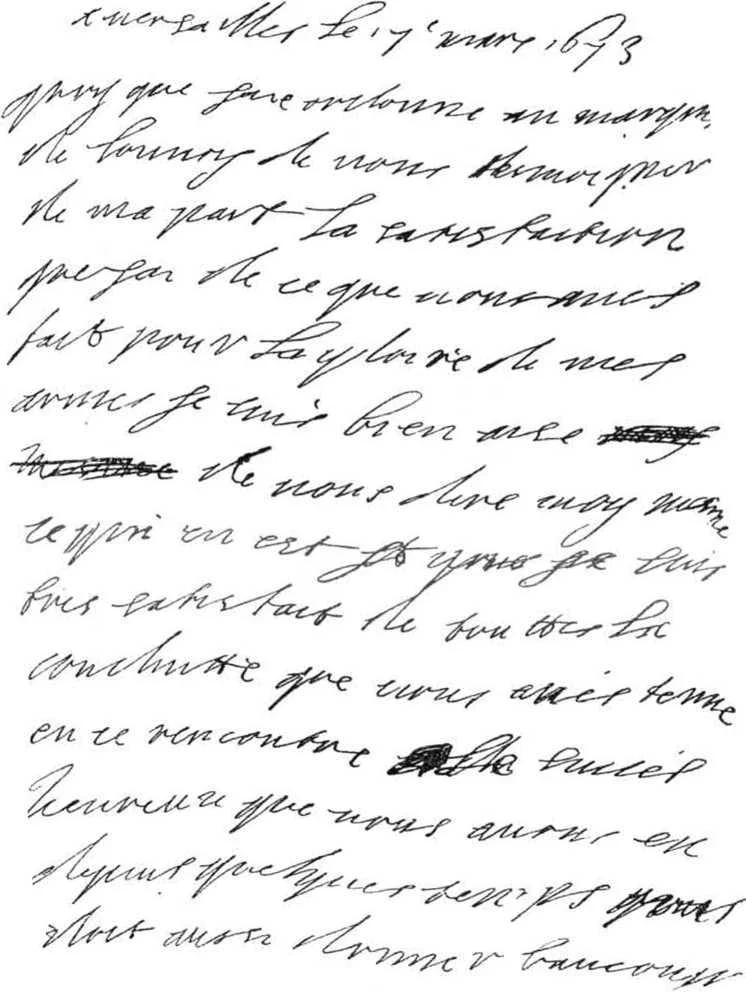 a uersailles le 17e mars 1673
quoy que jaye ordonne au marquis
de louuoy de uous tesmoigner
de ma part la satisfaction
que jai de ce que uous aues
fait pour la gloire de mes
armes je suis bien aise
de uous dire moy mesme
ce qui en est je suis
tres satisfait de touttes la
conduitte que uous aues tenue
en ce rencontre le succes
heureux que nous auons eu
depuis quelques temps uous
doit aussi donner baucoup